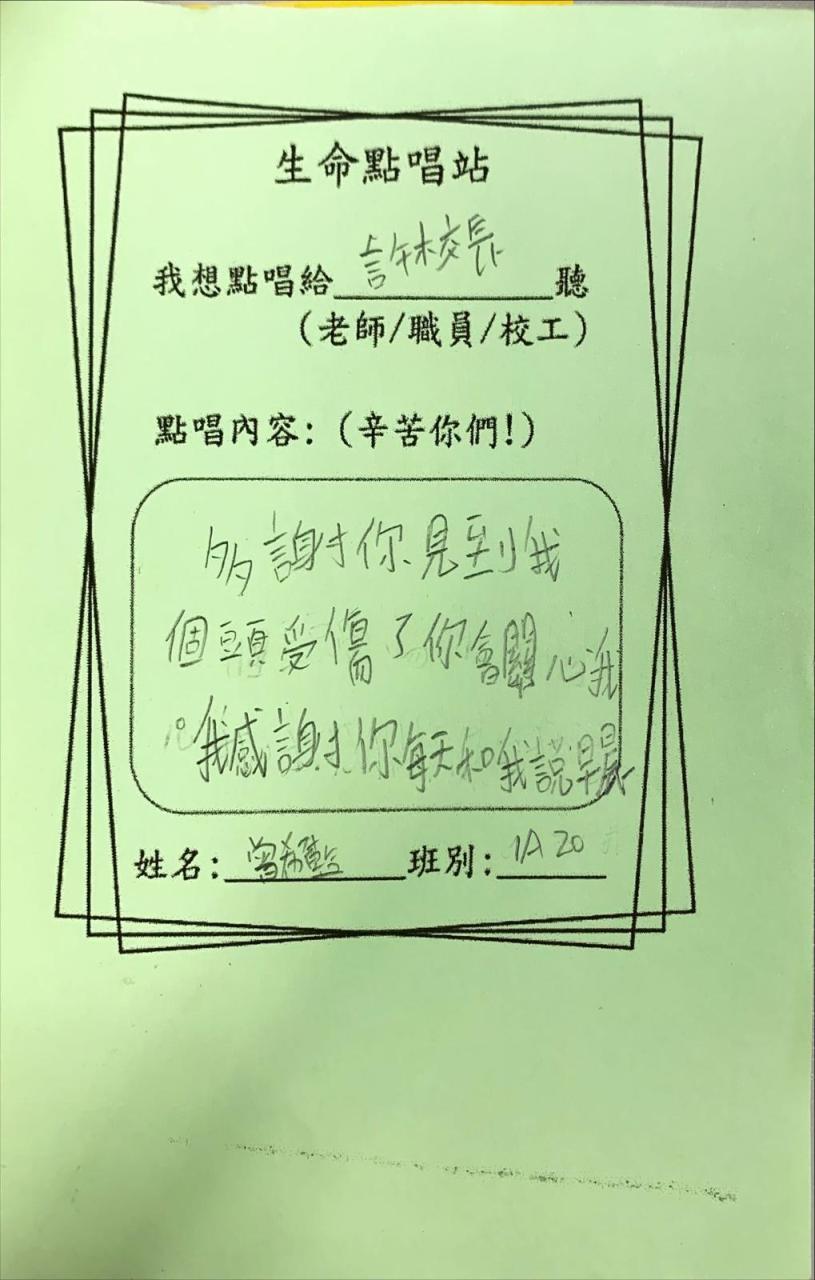 生命點唱站
我想點唱給許校長聽
(老師/職員/校工)
點唱內容:(辛苦你們!)
多謝你見到我
個頭受傷了你會關心我
。我感謝你每天和我說早晨
姓名:曾希 班別:1A 20